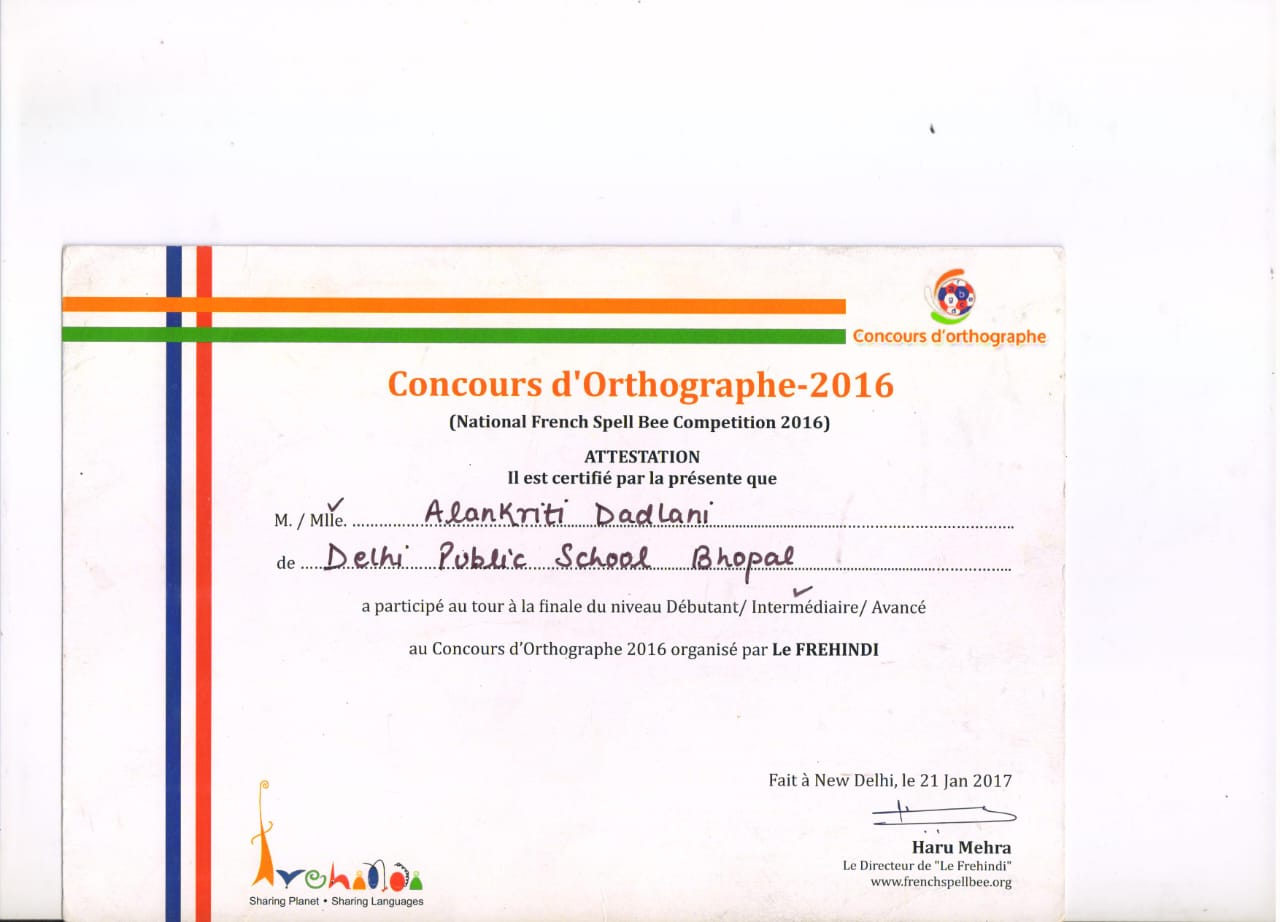 Concours d'orthographe
Concours d'Orthographe-2016
(National French Spell Bee Competition 2016)
ATTESTATION
Il est certifié par la présente que
M. / Mlle. ✓ Alankriti Dadlani
de Delhi Public School Bhopal
a participé au tour à la finale du niveau Débutant/ Intermédiaire/ Avancé
au Concours d'Orthographe 2016 organisé par Le FREHINDI
Fait à New Delhi, le 21 Jan 2017
Haru Mehra
Le Directeur de "Le Frehindi"
www.frenchspellbee.org
frehindi
Sharing Planet • Sharing Languages